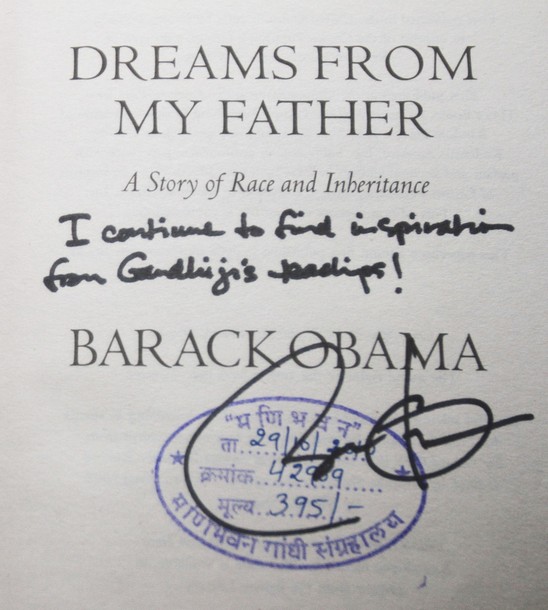 DREAMS FROM
MY FATHER
A Story of Race and Inheritance
I continue to find inspiration
from Gandhiji's teachings!
BARACK OBAMA
"म णि भ व न"
ता...29/10/2010
क्रमांक...42989......
मूल्य...395/-
मणिभवन गांधी संग्रहालय